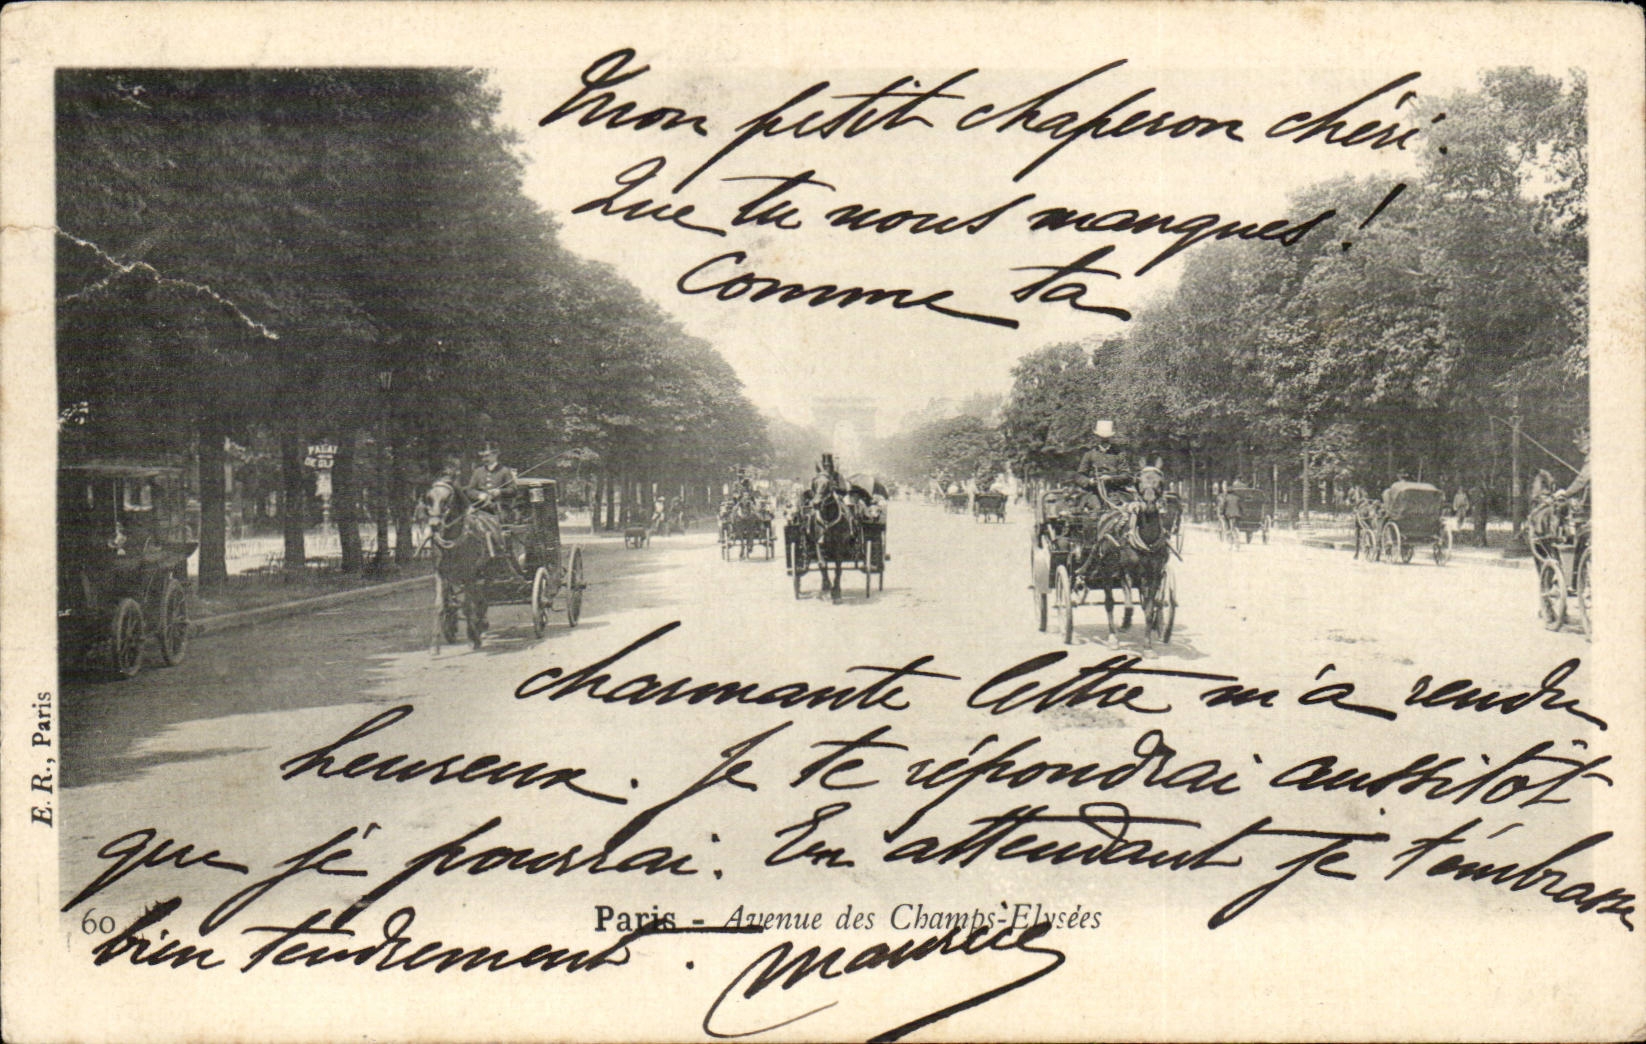 Mon petit chaperon chéri.
Que tu nous manques !
Comme ta
PALAI
DE GL
charmante lettre m'a rendu
heureux. Je te répondrai aussitôt
que je pourrai. En attendant je t'embrasse
bien tendrement. Maurice
E. R., Paris
60
Paris - Avenue des Champs-Elysées